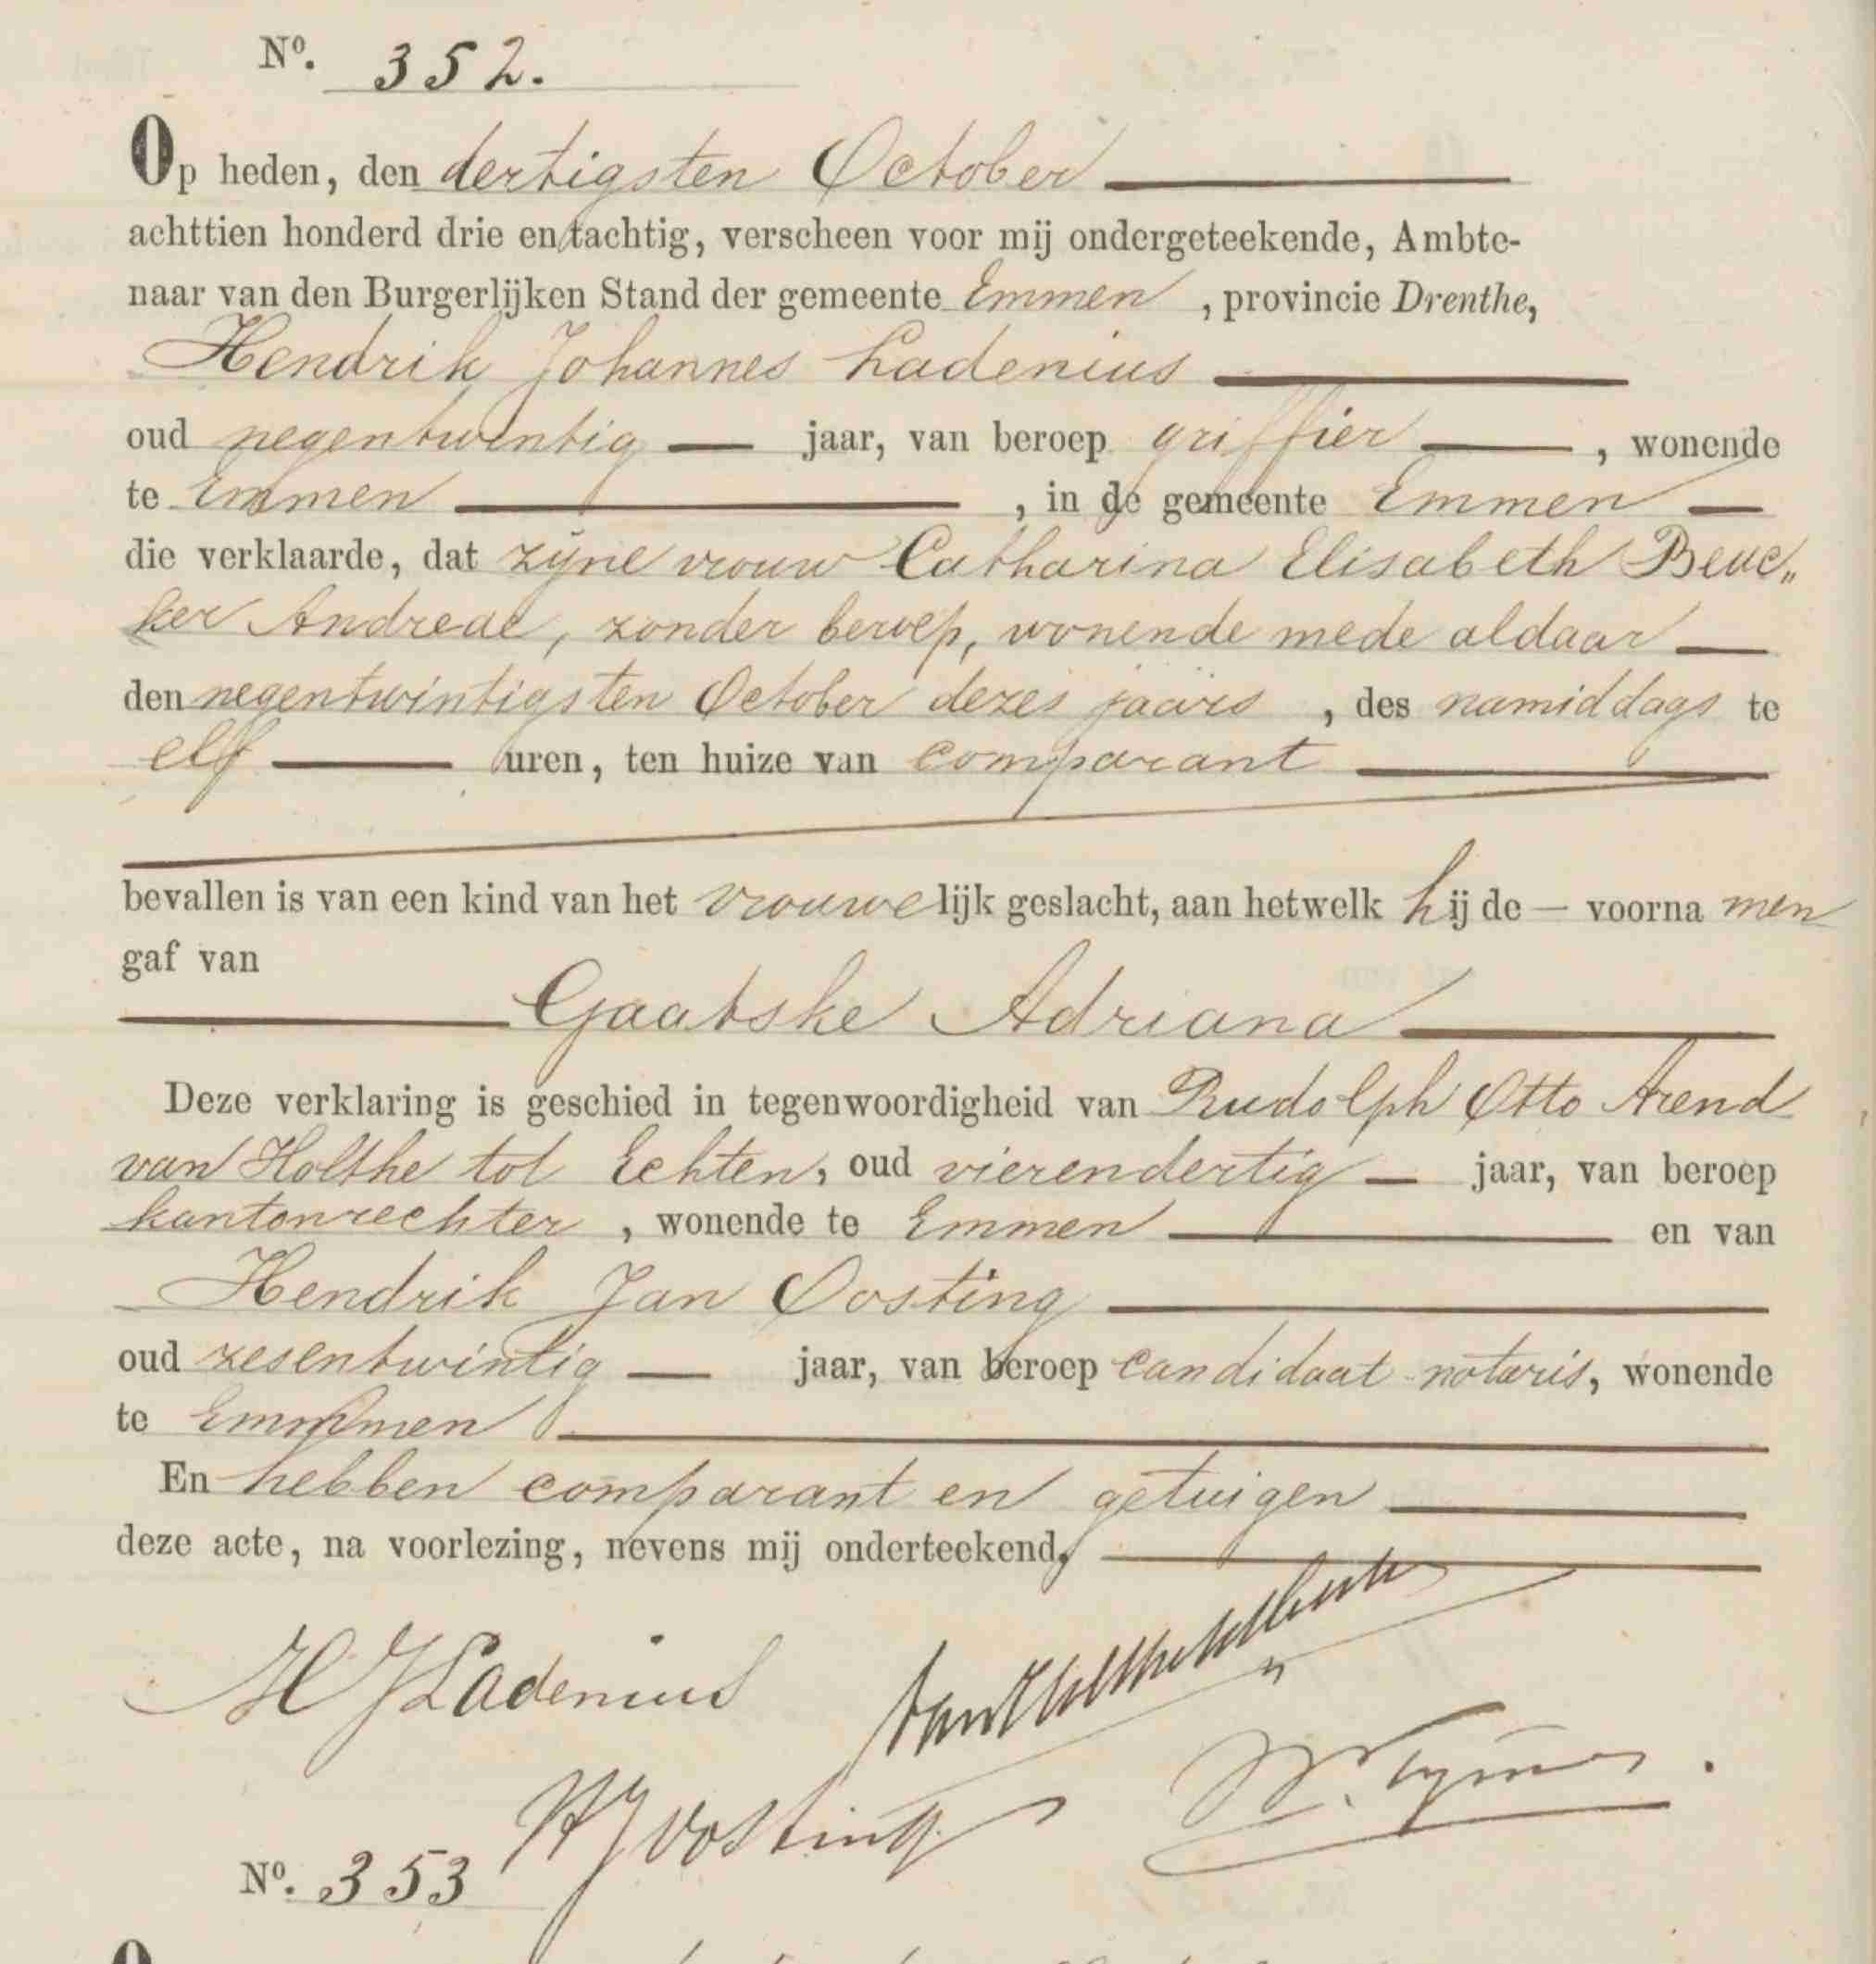 Nº. 352.
Op heden, den dertigsten October
achttien honderd drie en tachtig, verscheen voor mij ondergeteekende, Ambte-
naar van den Burgerlijken Stand der gemeente Emmen, provincie Drenthe,
Hendrik Johannes Ladenius
oud negentwintig jaar, van beroep griffier, wonende
te Emmen, in de gemeente Emmen
die verklaarde, dat zijne vrouw Catharina Elisabeth Beuc„
ker Andreae, zonder beroep, wonende mede aldaar
den negentwintigsten October dezes jaars, des namiddags te
elf uren, ten huize van comparant
bevallen is van een kind van het vrouwelijk geslacht, aan hetwelk hij de — voorna men
gaf van
Gaatske Adriana
Deze verklaring is geschied in tegenwoordigheid van Rudolph Otto Arend
van Holthe tot Echten, oud vierendertig jaar, van beroep
kantonrechter, wonende te Emmen en van
Hendrik Jan Oosting
oud zesentwintig jaar, van beroep candidaat-notaris, wonende
te Emmen
En hebben comparant en getuigen
deze acte, na voorlezing, nevens mij onderteekend,
HJLadenius
van Holthe tot Echten
HJOosting
Nº. 353